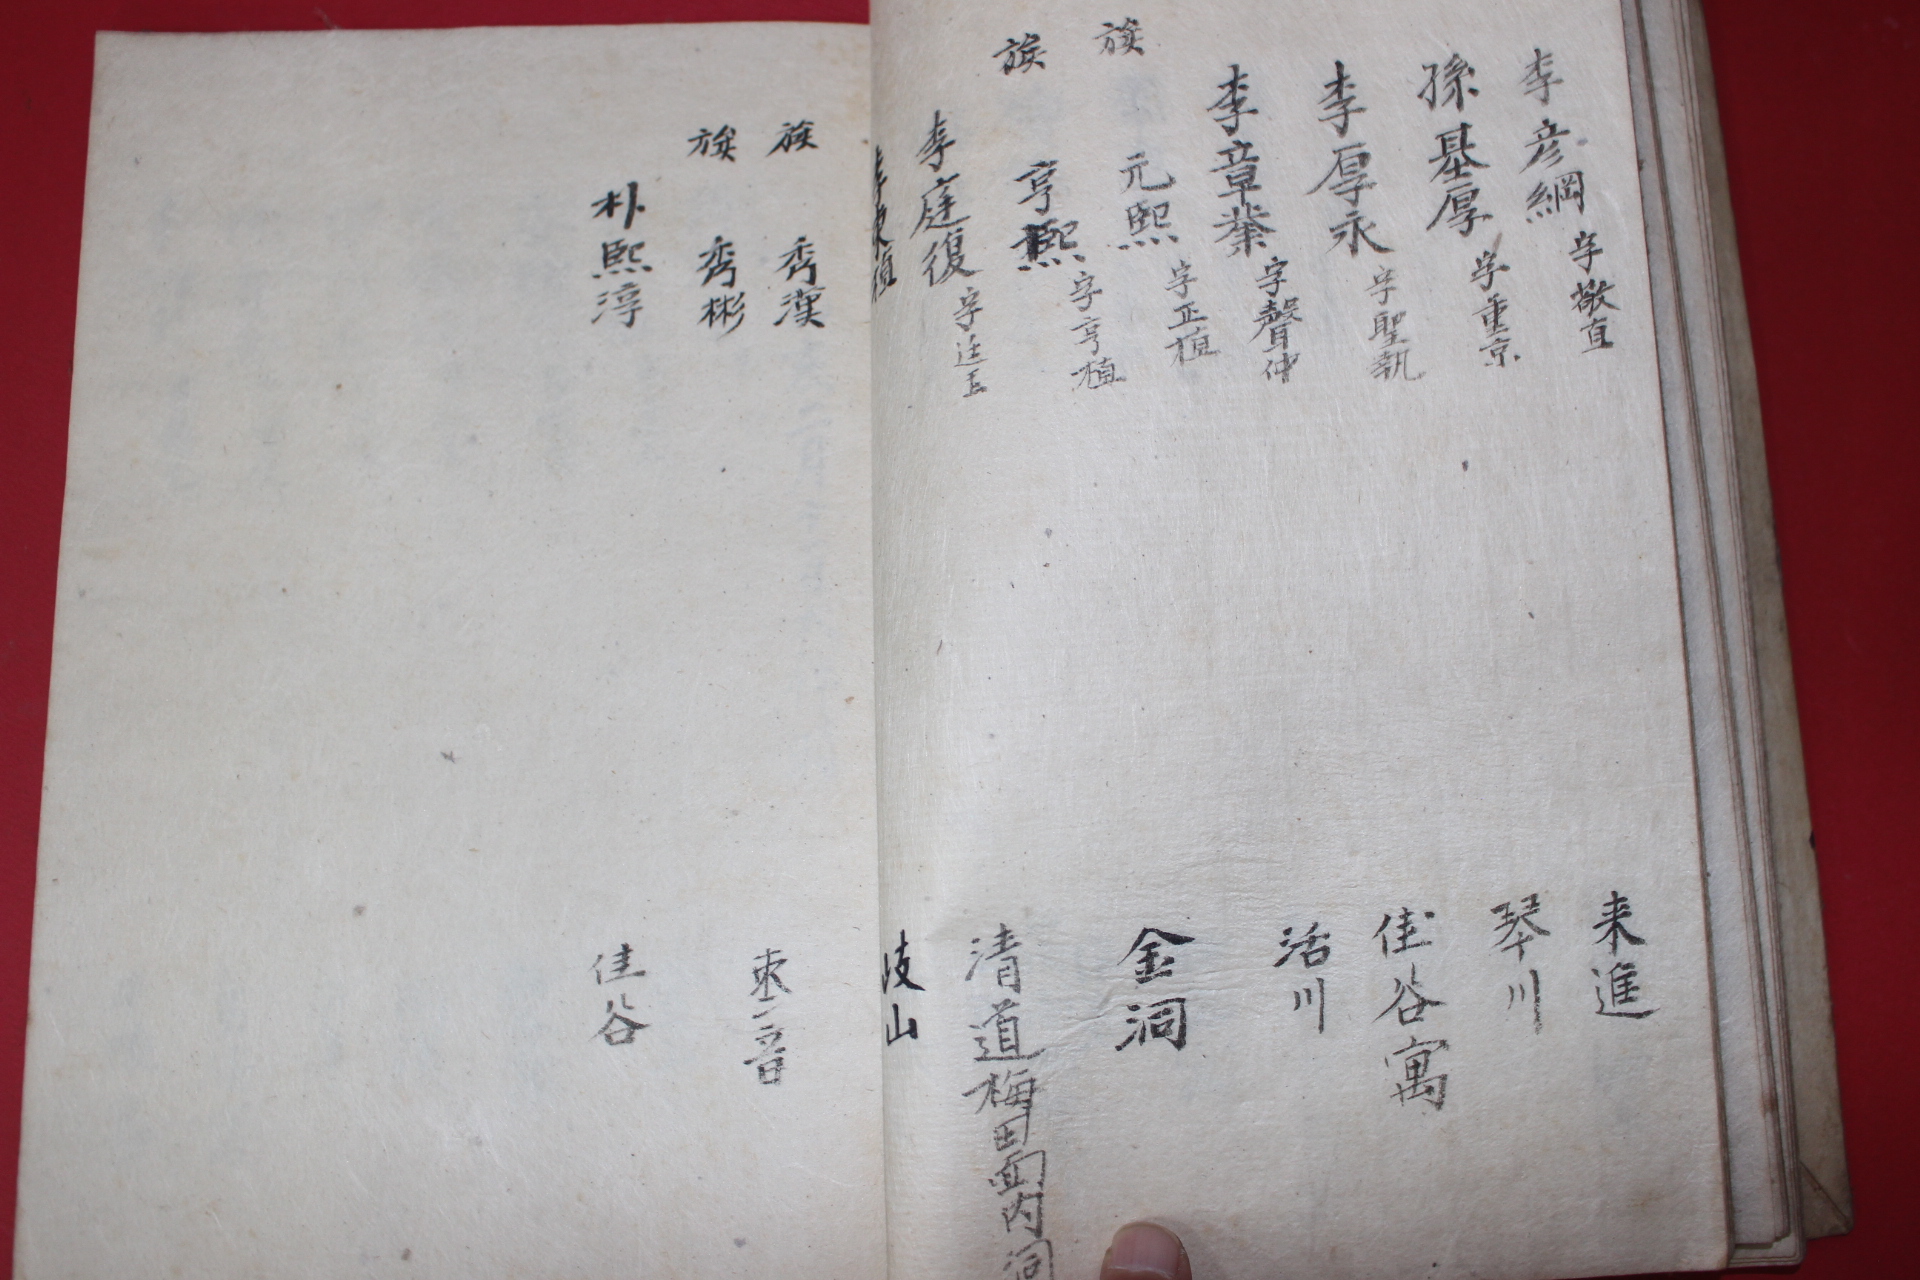 李彦綱 字敬直 来進
孫基厚 字重京 琴川
李厚永 字聖執 佳谷寓
李章 字聲仲 活川
族 元熙 字正植 金洞
族 亨熙 字亨植
李庭復 字廷玉 清道梅田面內洞
岐山
族 秀漢
族 秀彬
朴熙淳 佳谷